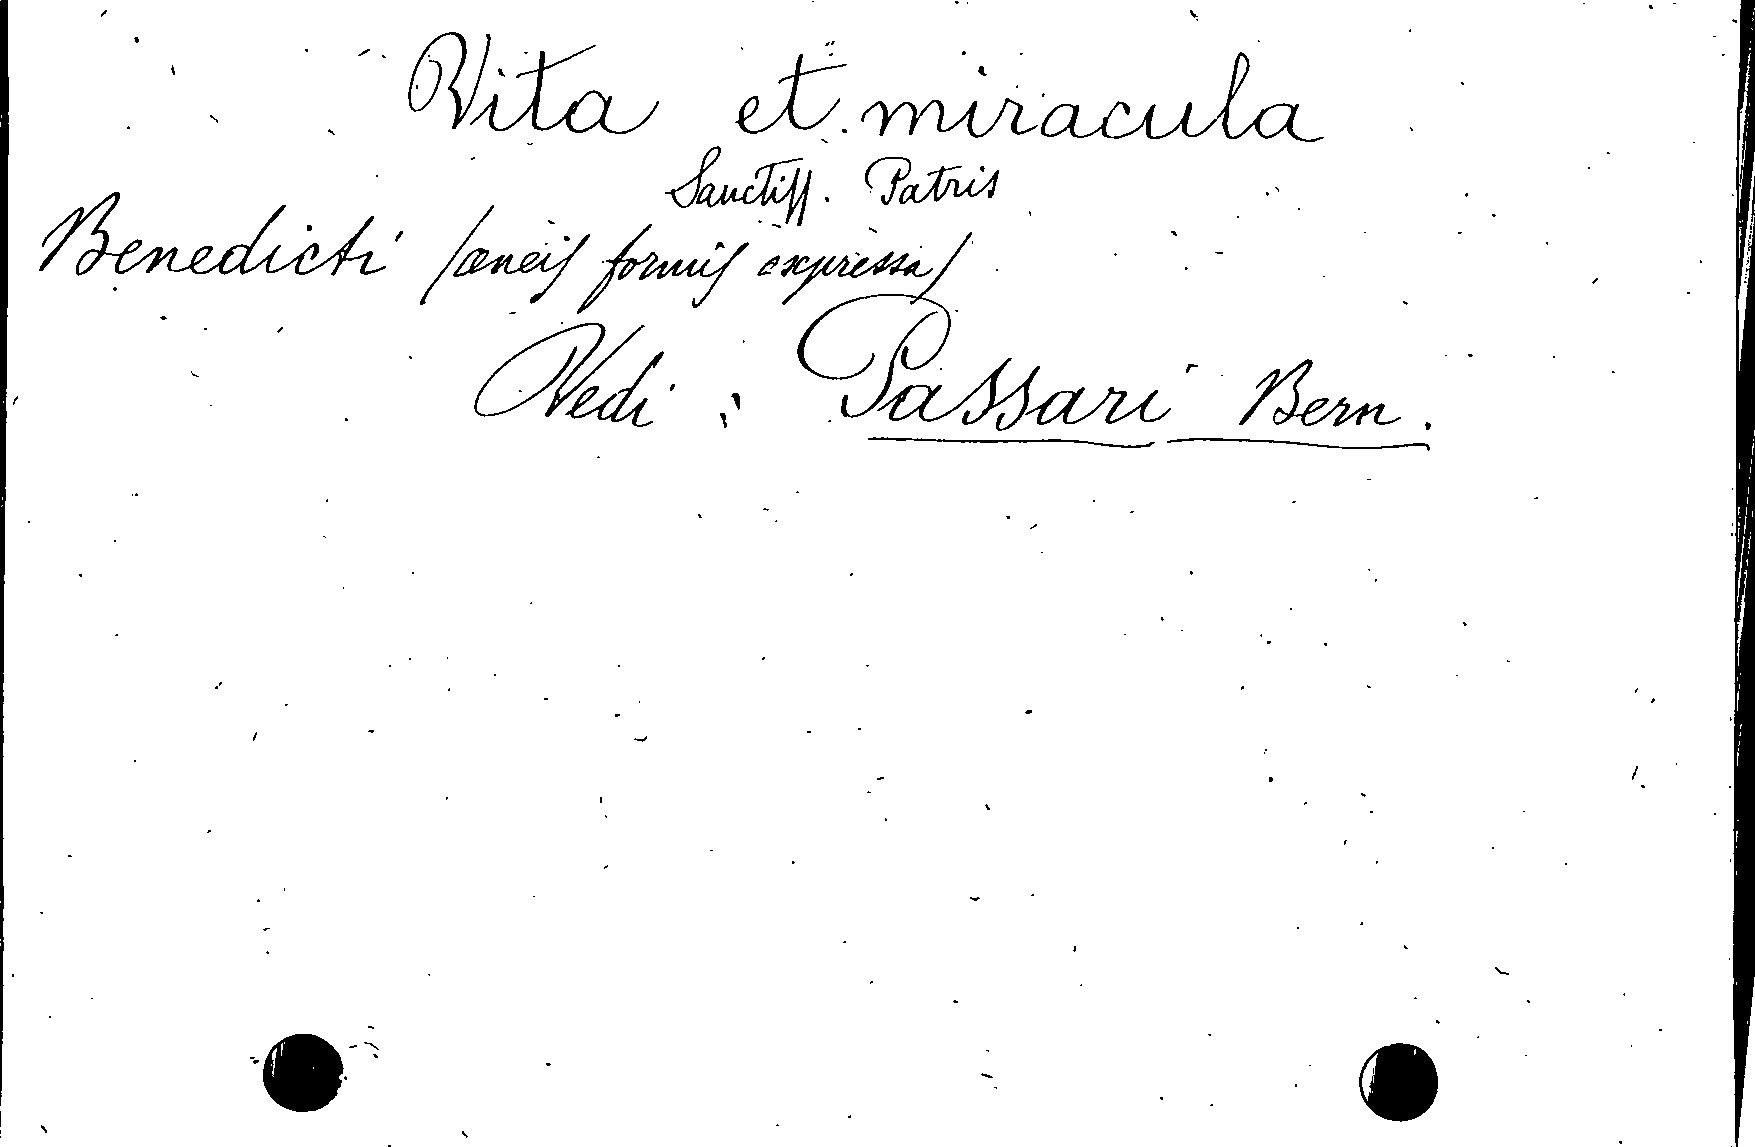 Vita et miracula
Sanctiss. Patris
Benedicti (æneis formis expressa)
Vedi: Passari Bern.